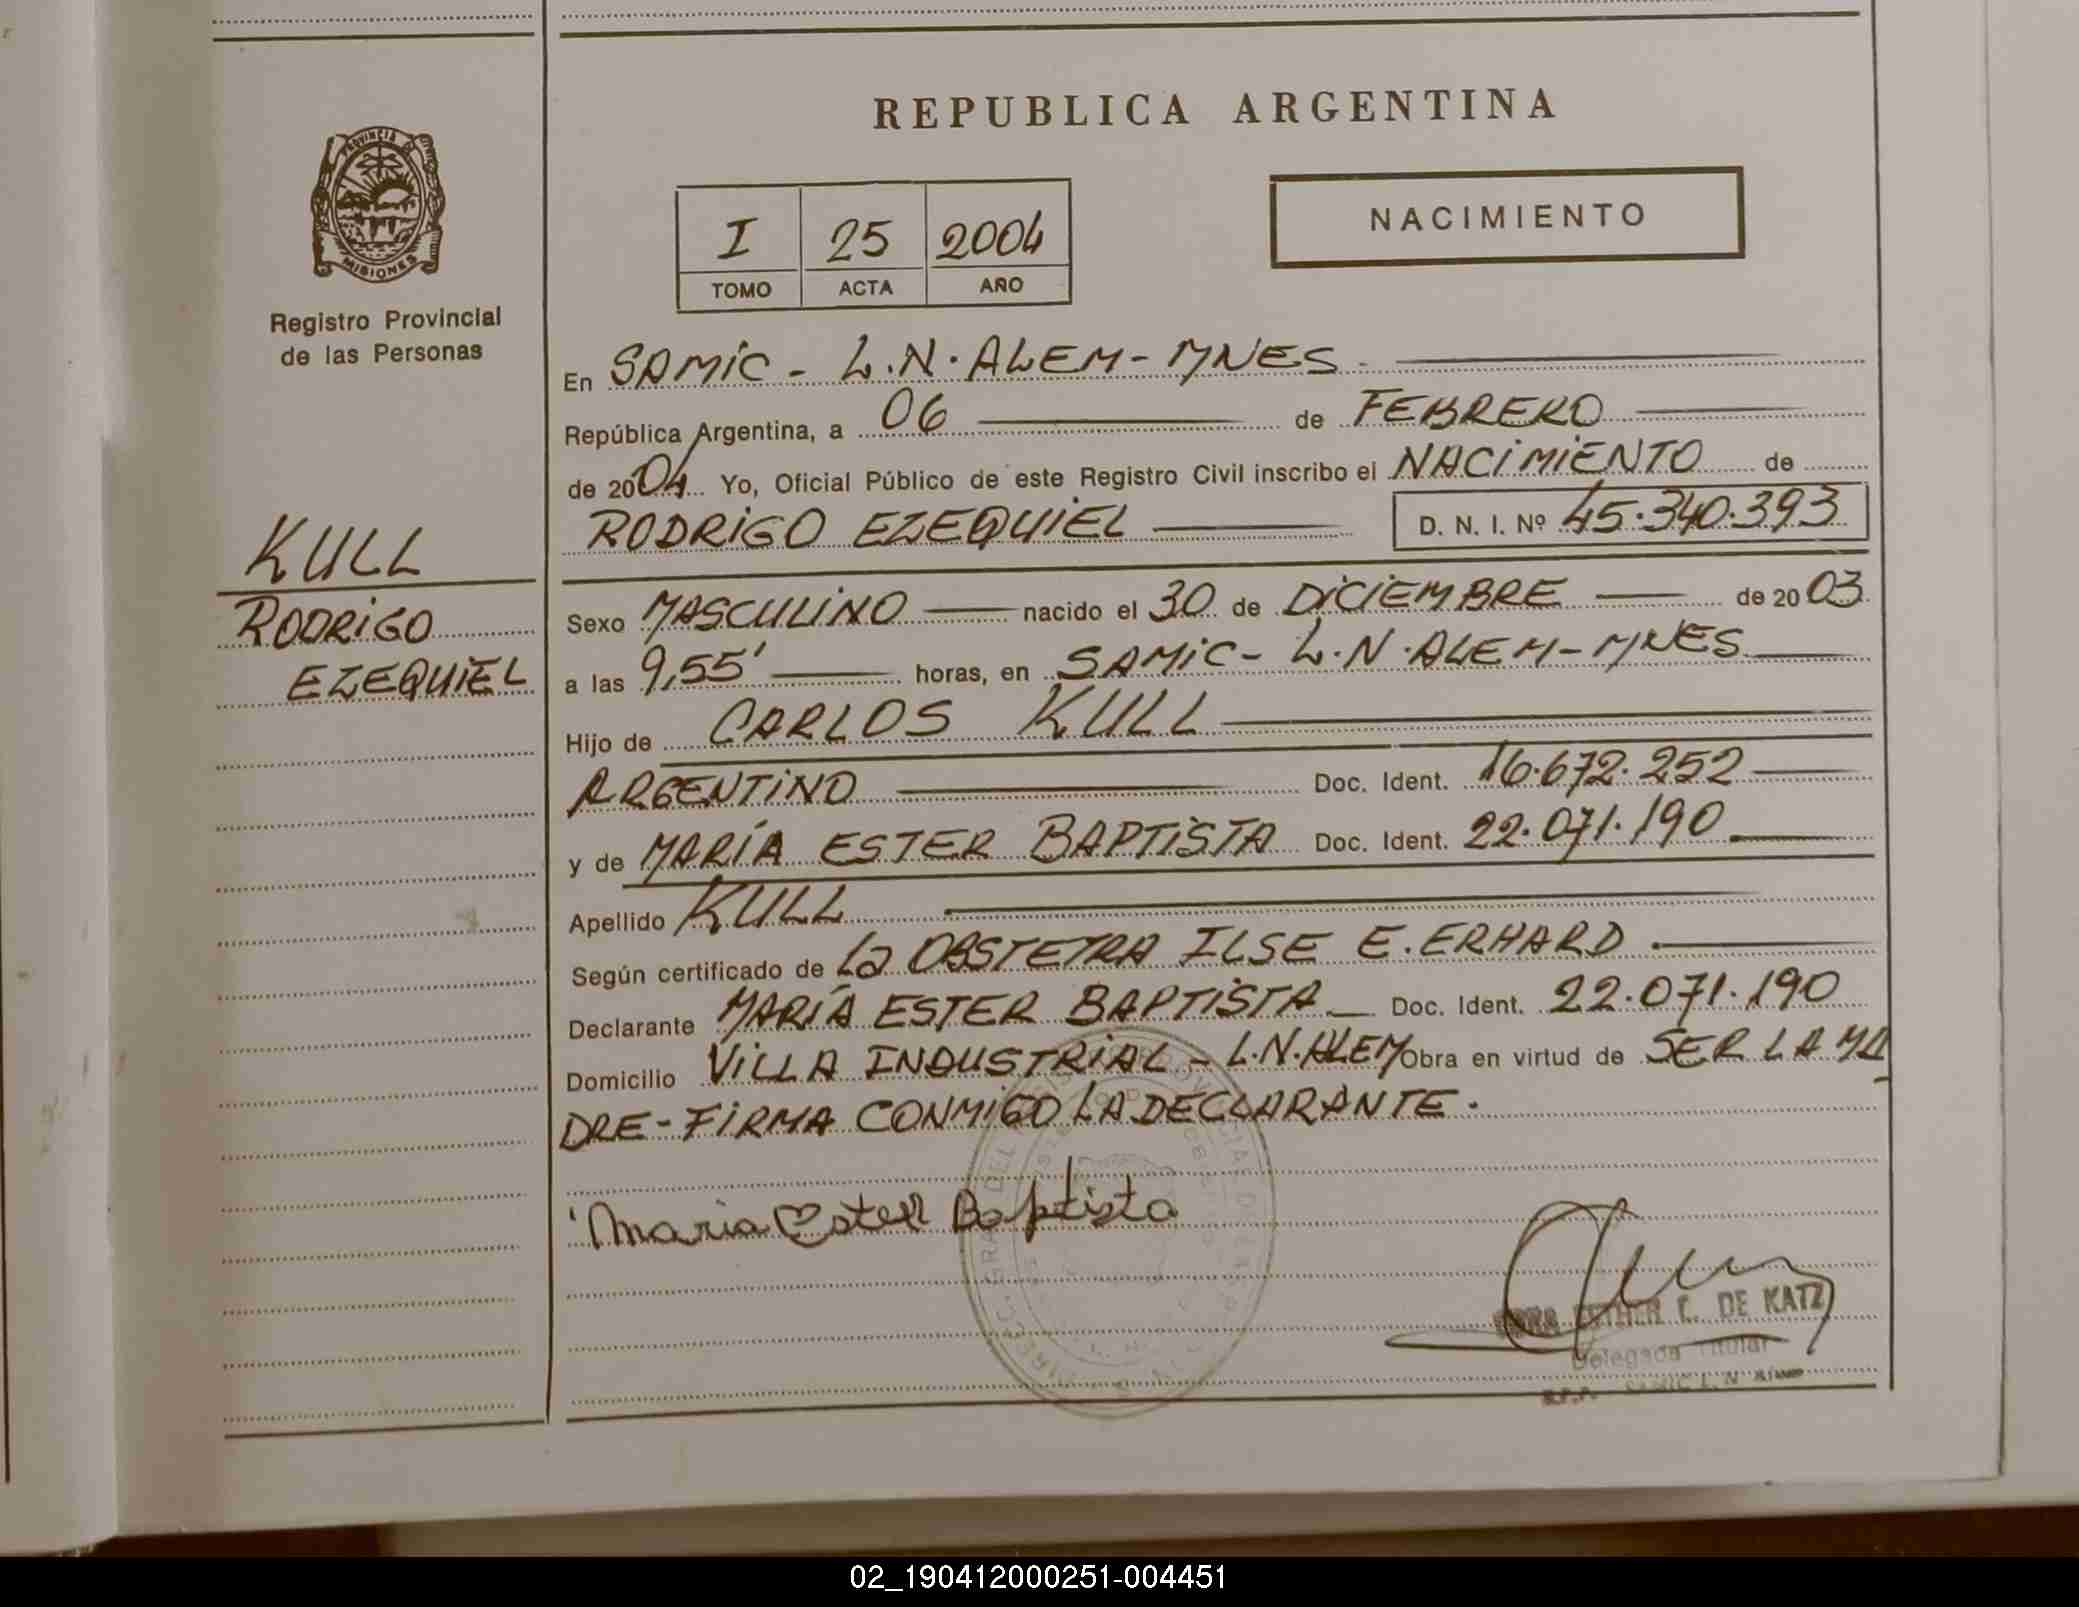 REPUBLICA ARGENTINA
PROVINCIA DE MISIONES
Registro Provincial
de las Personas
I 25 2004
TOMO ACTA AÑO
NACIMIENTO
En SAMiC - L.N. ALEM - MNES -
República Argentina, a 06 de FEBRERO
de 2004 Yo, Oficial Público de este Registro Civil inscribo el NACiMiENTO de
RODRiGO EZEQUiEL D. N. I. Nº 45.340.393
KULL
RODRiGO
EZEQUiEL
Sexo MASCULiNO nacido el 30 de DiCiEMBRE de 2003
a las 9,55' horas, en SAMiC - L.N. ALEM - MNES
Hijo de CARLOS KULL
ARGENTiNO Doc. Ident. 16.672.252
y de MARÍA ESTER BAPTiSTA Doc. Ident. 22.071.190
Apellido KULL
Según certificado de La OBSTETRA ILSE E. ERHARD.
Declarante MARÍA ESTER BAPTiSTA Doc. Ident. 22.071.190
Domicilio ViLLA INDUSTRiAL - L.N. ALEM Obra en virtud de SER LA MA
DRE - FiRMA CONMiGO LA DECLARANTE.
Maria Ester Baptista
ESTHER C. DE KATZ
Delegada Titular
02_190412000251-004451